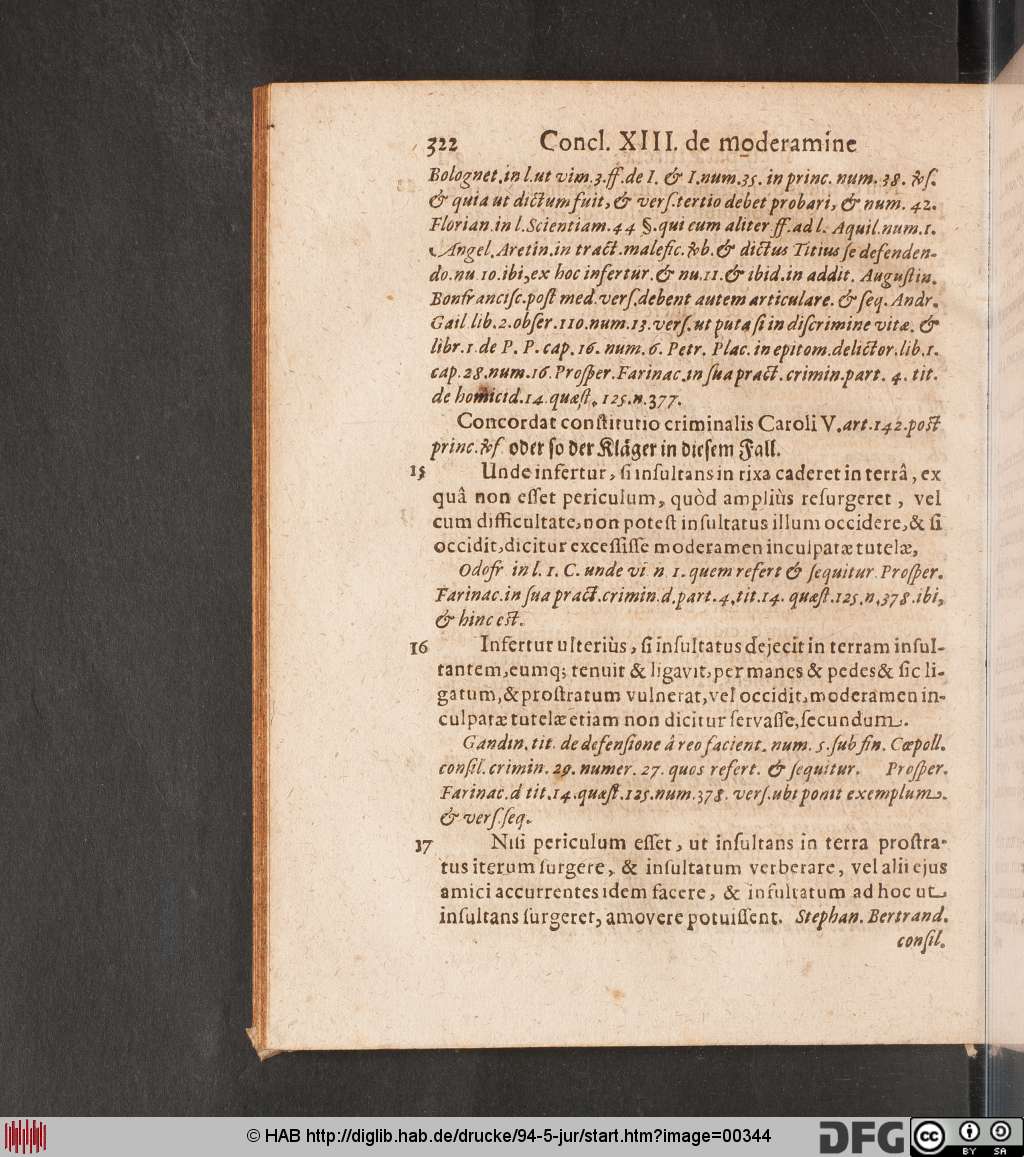 322 Concl. XIII. de moderamine
Bolognet. in l. ut vim. 3. ff. de I. & I. num. 35. in princ. num. 38. &ſ.
& quia ut dictum fuit, & verſ. tertio debet probari, & num. 42.
Florian. in l. Scientiam. 44 §. qui cum aliter ff. ad l. Aquil. num. 1.
Angel. Aretin. in tract. malefic. &b. & dictus Titius ſe defenden-
do. nu. 10. ibi, ex hoc infertur. & nu. 11. & ibid. in addit. Auguſtin.
Bonfranciſc. poſt med. verſ. debent autem articulare. & ſeq. Andr.
Gail lib. 2. obſer. 110. num. 13. verſ. ut puta ſi in diſcrimine vitæ. &
libr. 1. de P. P. cap. 16. num. 6. Petr. Plac. in epitom. delictor. lib. 1.
cap. 28. num. 16. Proſper. Farinac. in ſua pract. crimin. part. 4. tit.
de homicid. 14. quæſt. 125. n. 377.
Concordat conſtitutio criminalis Caroli V. art. 142. poſt
princ. &ſ oder ſo der Kläger in dieſem Fall.
15 Unde infertur, ſi inſultans in rixa caderet in terrâ, ex
quâ non eſſet periculum, quòd ampliùs reſurgeret, vel
cum difficultate, non poteſt inſultatus illum occidere, & ſi
occidit, dicitur exceſſiſſe moderamen inculpatæ tutelæ,
Odofr in l. 1. C. unde vi n 1. quem refert & ſequitur Proſper.
Farinac. in ſua pract. crimin. d. part. 4. tit. 14. quæſt. 125. n. 378. ibi,
& hinc eſt.
16 Infertur ulteriùs, ſi inſultatus dejecit in terram inſul-
tantem, eumq; tenuit & ligavit, per manes & pedes & ſic li-
gatum, & proſtratum vulnerat, vel occidit, moderamen in-
culpatæ tutelæ etiam non dicitur ſervaſſe, ſecundum.
Gandin. tit. de defenſione â reo facient. num. 5. ſub fin. Cœpoll.
conſil. crimin. 29. numer. 27. quos refert. & ſequitur. Proſper.
Farinac. d tit. 14. quæſt. 125. num. 378. verſ. ubi ponit exemplum.
& verſ. ſeq.
17 Niſi periculum eſſet, ut inſultans in terra proſtra-
tus iterum ſurgere, & inſultatum verberare, vel alii ejus
amici accurrentes idem facere, & inſultatum ad hoc ut
inſultans ſurgeret, amovere potuiſſent. Stephan. Bertrand.
conſil.
© HAB http://diglib.hab.de/drucke/94-5-jur/start.htm?image=00344
DFG
cc BY SA